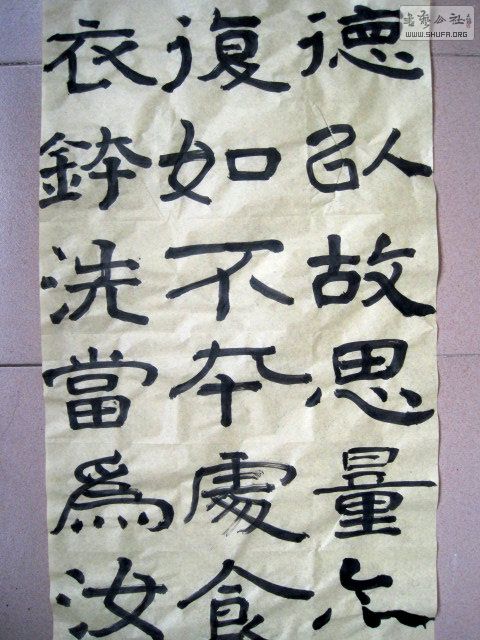 德以故思量亦
復如不本處食
衣鉢洗當爲汝
书艺公社
WWW.SHUFA.ORG